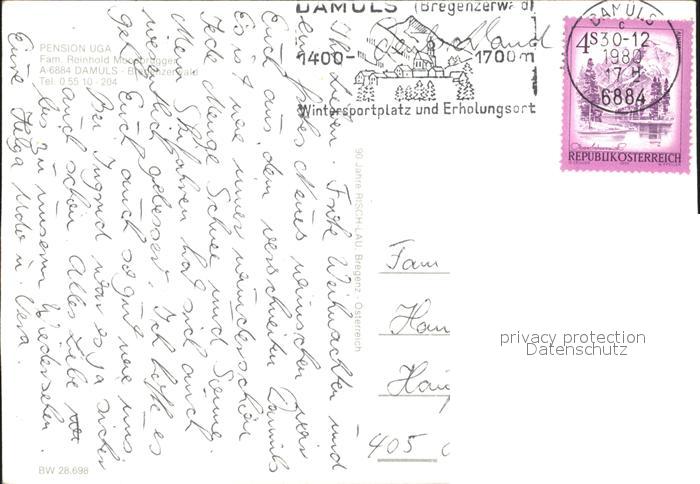 DAMÜLS (Bregenzerwald)
1400-
1700m
Wintersportplatz und Erholungsort
DAMÜLS
c
30-12
1980
17 H
6884
4S
REPUBLIK ÖSTERREICH
Deutschland
PENSION UGA
Fam. Reinhold Moosbrugger
A-6884 DAMÜLS - Bregenzerwald
Tel. 0 55 10 - 204
Ihr Lieben. Frohe Weihnachten und
ein frohes Neues wünschen wir
Euch aus dem verschneiten Damüls
Es ist wie immer wunderschön
Jede Menge Schnee und Sonne.
Skifahren hat sich auch
gebessert. Ich hoffe es
geht Euch auch so gut wie uns.
Bei Ingrid war es ja sicher
auch schön. Alles Liebe
bis zu unserem Wiedersehen.
Eure Helga Udo u. Vera.
90 Jahre RISCH-LAU, Bregenz, Österreich
Fam
Han
405
BW 28.698
privacy protection
Datenschutz